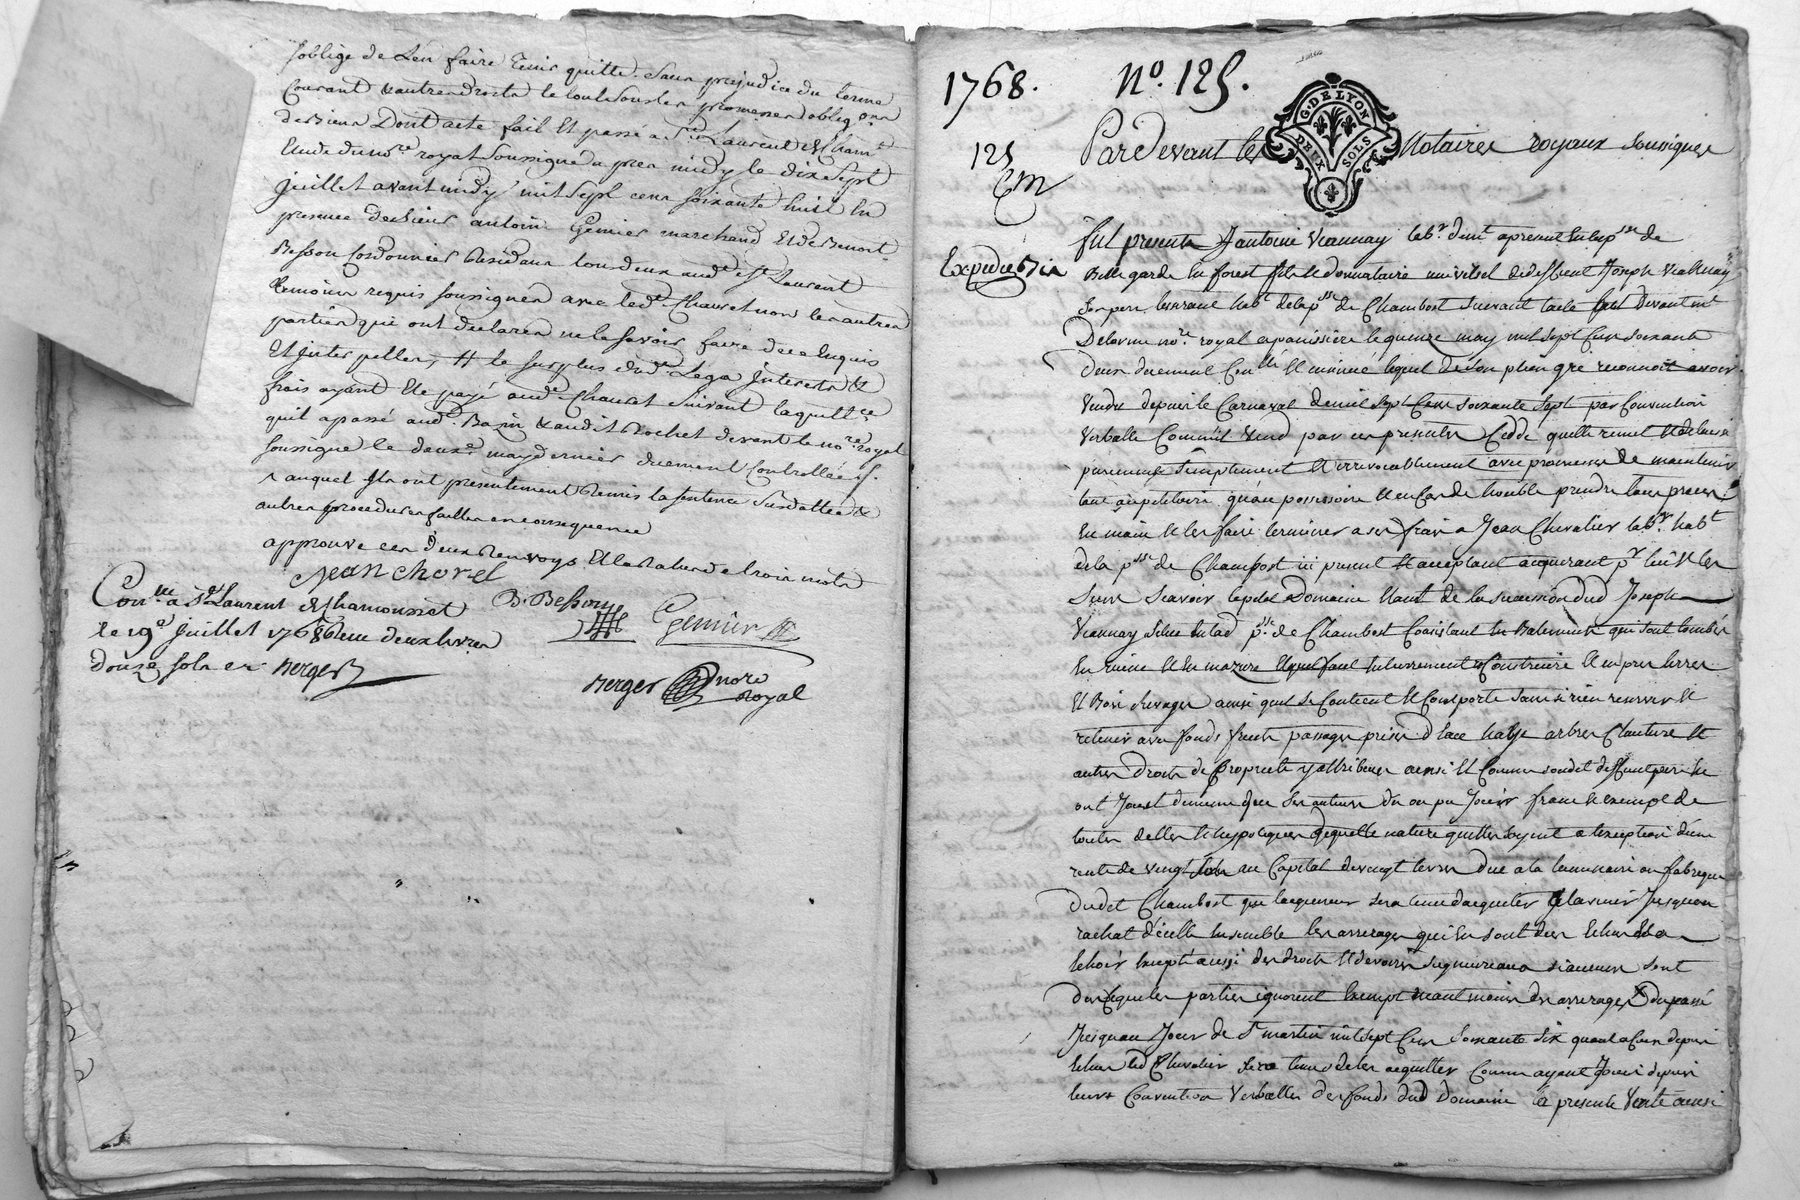 s'oblige de l'en faire tenir quitte. Sans prejudice du terme
Courant & autres droits le tout sous les promesses oblig.ons
des Biens Dont acte fait Et passé a St Laurent de Cham.t
Etude du no.re royal Soussigné apres midy le dix Sept
juillet avant midy mil sept cens soixante huit En
presence de Sieur antoine Gemier marchand Et de Benoit
Besson Cordonnier Residans tous deux aud.t St Laurent
temoins requis soussignés avec led.t Chavret non les autres
parties qui ont declarés ne le sçavoir faire de ce Enquis
Et jnterpellés, # le surplus dud.t Lega Interets &
frais ayant Ete payé aud.t Chavret Suivant la quitt.ce
qu'il a passé aud. Bazin & audit Rochet devant le no.re royal
soussigné le deux.e may dernier duement Controllée
auquel Ils ont presentement Remis la sentence Susdattée &
autres procedures faittes en consequence
approuve ces deux Renvoys Et la Rature de trois mots
Jean Chovet
B. Besson Gemier
Con.lé à St Laurent de Chamousset
le 19.e Juillet 1768 Receu deux livres
douze sols Berger
Berger nore
royal
1768. N.o 125.
G. DE LYON
DEUX SOLS
125
Par devant les Notaires royaux soussignés
Expediée
fut present Antoine Viannay lab.r dem.t apresent En la p.sse de
Bellegarde En forest fils Et donnataire universel de deffunt Joseph Viannay
Son pere lors vivant hab.t de la p.sse de Chambost Suivant l'acte fait Devant m.e
Delorme no.re royal a panissiere le quinze may mil sept Cens soixante
Deux duement Con.llé Et insinué lequel de Son plein gré reconnoit avoir
Vendu depuis le Carnaval de mil Sept Cens soixante Sept par Convention
Verballe Comm'il Vend par ces presentes Cedde quitte remet Et delaisse
purement Simplement Et irrevocablement avec promesse de maintenir
tant au petitoire qu'au possessoire Et en Cas de trouble prendre tous procès
En main Et les faire terminer a ses frais a Jean Chevalier lab.r hab.t
de la p.sse de Chambost ici present Et acceptant acquerant p.r luy Et les
Siens Scavoir le petit Domaine Etant de la succession dud. Joseph
Viannay Scitué En lad. p.sse de Chambost Consistant En Batimens qui sont tombés
En ruine Et En mazure Et prés terres
Et Bois Sauvages ainsi qu'il se Contient Et Comporte sans s'y rien reserver Et
retenir avec fonds fruits passages prises d'Eau hayes arbres Clauture Et
autres Droits de Proprieté y attribués ainsi Et Comme sondit deffunt pere Et lui
ont Joui Et de meme que Ses auteurs du ou pu Jouir franc Et exempt de
toutes dettes Et hypoteques de quelle nature qu'elles Soyent a l'exception d'une
rente de vingt sols au Capital de vingt livres Due a la luminaire ou fabrique
Dudit Chambost que l'acquereur Sera tenu d'acquitter Et la servir Jusqu'au
rachat d'icelle Ensemble les arrerages qui En sont dus Echus Et a
Echoir Excepté aussi des droits Et devoirs Seigneuriaux si aucuns sont
Dus que les parties ignorent Exempt neantmoins des arrerages Du passé
Jusqu'au Jour de St martin mil Sept Cens Soixante Six quant a Ceux depuis
Echus led. Chevalier Sera tenu de les acquitter Comme ayant Joui depuis
leurs Convention Verballes des fonds dud Domaine la presente Vente ainsi